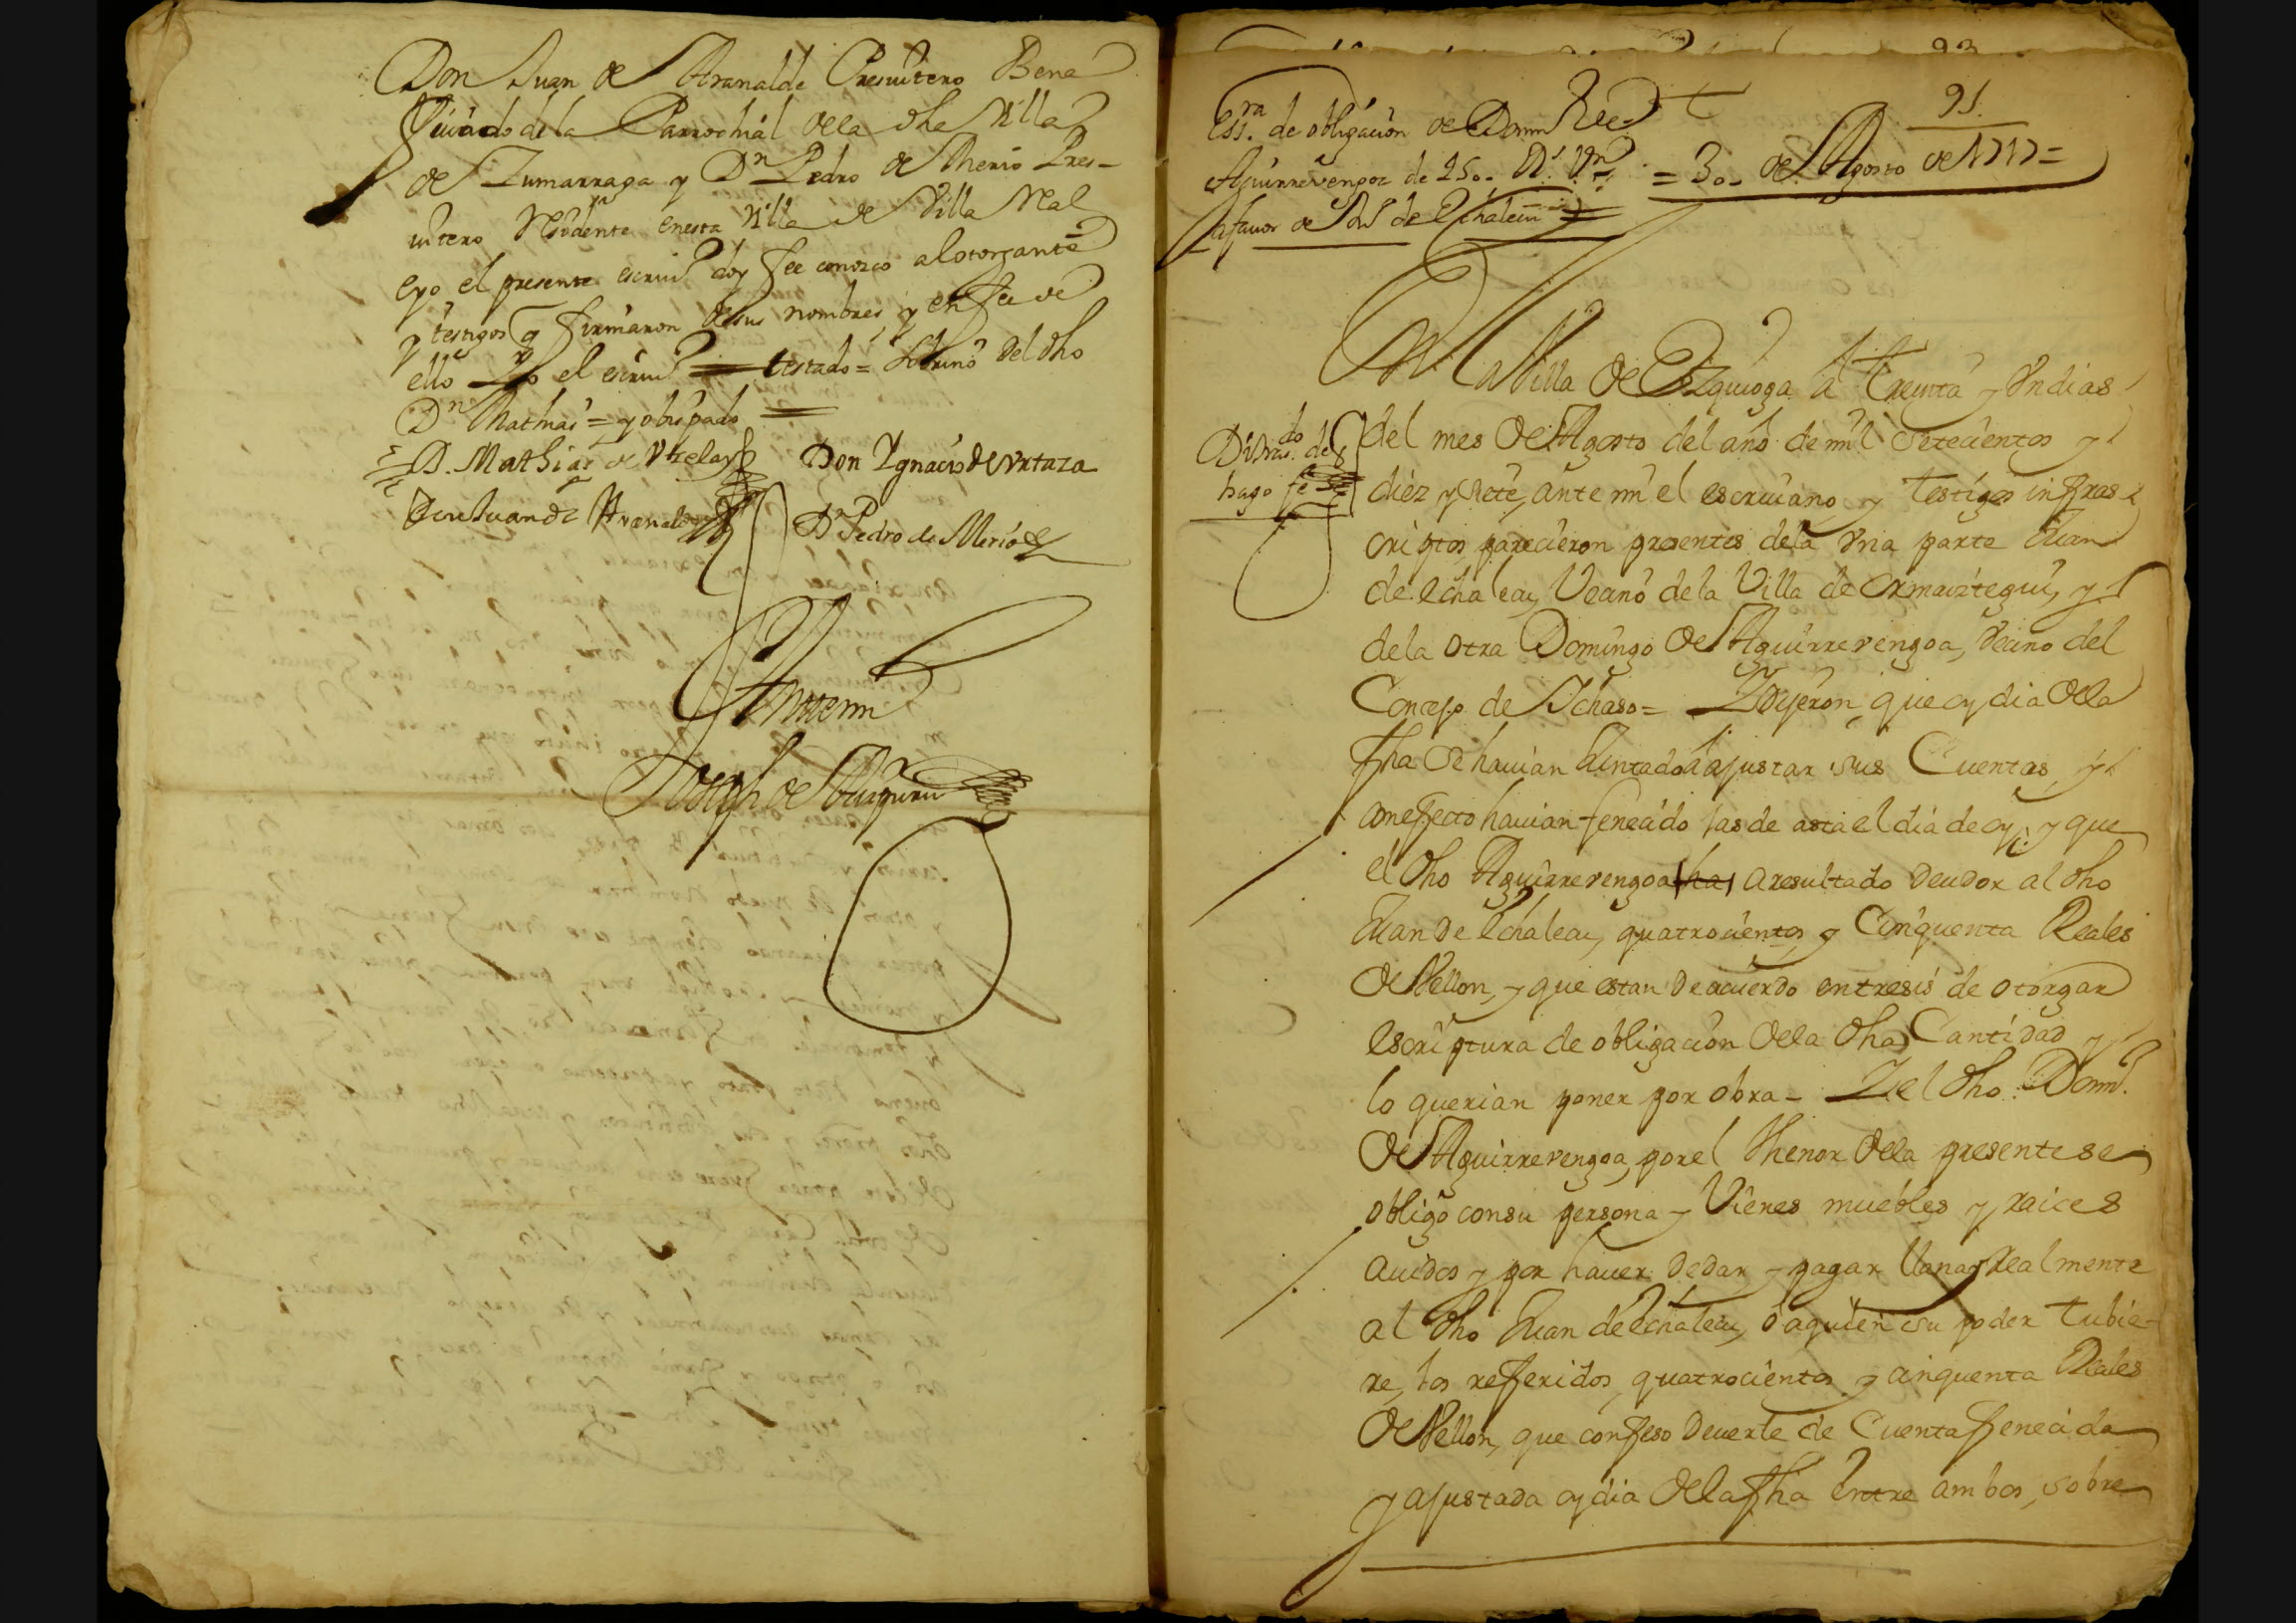 Don Juan de Aranalde Presuitero Bene
ficiado de la Parrochial de la dha Villa
de Zumarraga y Dn Pedro de Merio Pres-
uitero Residente en esta Villa de Villa Real
e yo el presente escriuo doy fee conozco al otorgante
y testigos q firmaron de sus nombres y en fee de
ello Yo el escriuo = testado = sobrino del dho
Dn Mathias = y obispado =
D. Mathias de Vrelay Don Ygnacio de Vrtaza
Don Juan de Aranalde Dn Pedro de Merio
Ante mi
Joseph de
93
91.
Essra. de obligacion de Domin de
Aguirrevengoa de 450 Rs. Vn = 30 de Agosto de 1717 =
a fauor de Jun de Echalecu =
En la Villa de Ezquioga a treinta y Vn dias
del mes de Agosto del año de mil setecientos y
diez y siete, ante mi el escriuano y testigos infras
criptos, parecieron presentes de la Vna parte Juan
de Echalecu, Vecino de la Villa de Ormaiztegui, y
de la otra Domingo de Aguirrevengoa, Vecino del
Concejo de Ichaso = Y Dijeron que oy dia de la
fha se hauian Juntado a ajustar sus Cuentas, y
con effecto hauian fenecido las de asta el dia de oy; y que
el dho Aguirrevengoa ha a resultado deudor al dho
Juan de Echalecu, quatrocientos y Cinquenta Reales
de Vellon, y que estan de acuerdo entre si de otorgar
escriptura de obligacion de la dha Cantidad y
lo querian poner por obra = Y el dho Domo.
de Aguirrevengoa, por el thenor de la presente se
obligo con su persona y Vienes muebles y raices
auidos y por hauer de dar y pagar llana y Realmente
al dho Juan de Echalecu, o a quien su poder tubie-
re, los refferidos, quatrocientos y cinquenta Reales
de Vellon, que confeso deuerle de Cuenta fenecida
y ajustada oy dia de la fha Entre ambos, sobre
Dido. de
hago fe